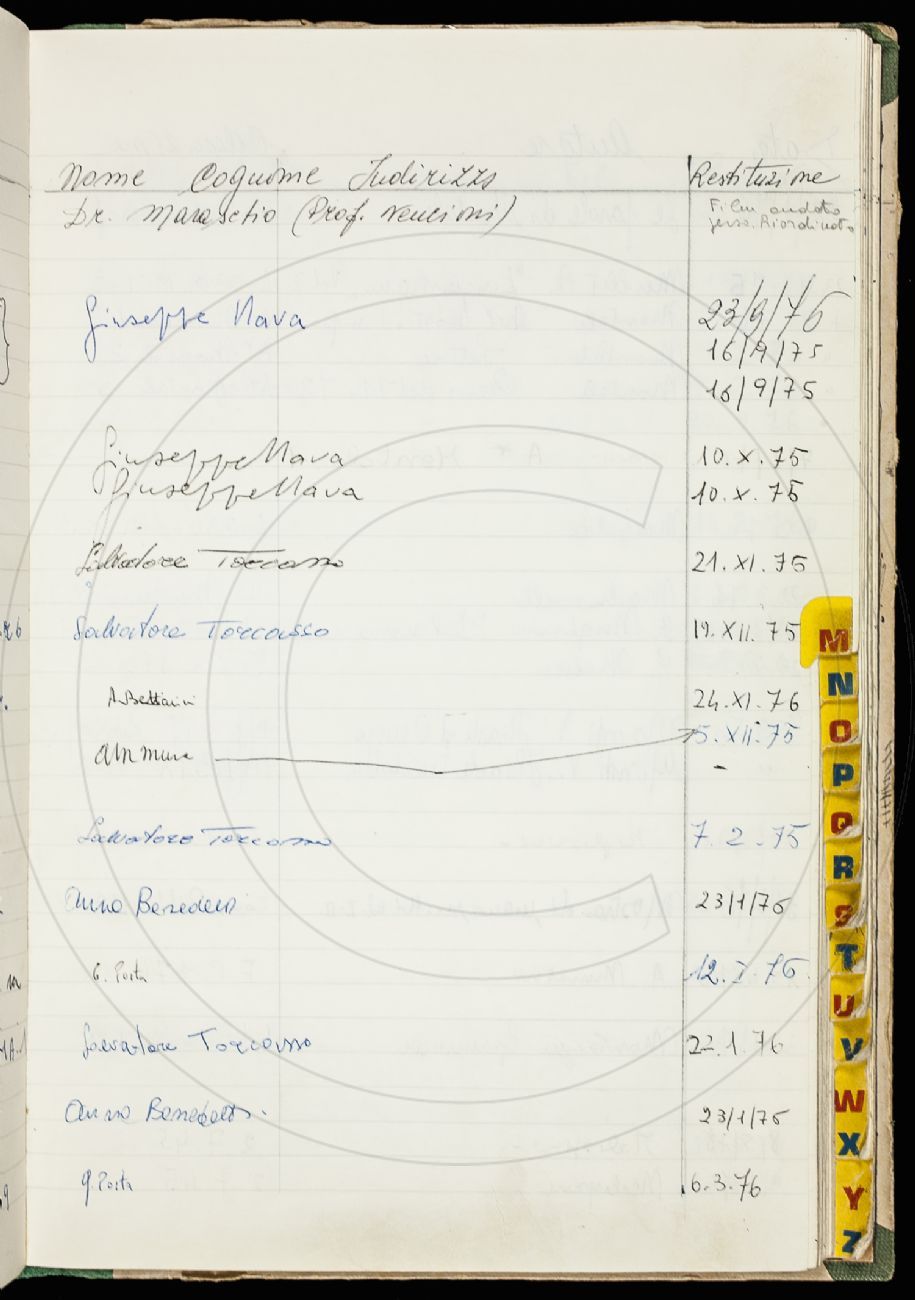 Nome Cognome Indirizzo Restituzione
Dr. Maraschio (Prof. Nencioni) Film andato
perso. Riordinato
Giuseppe Nava 23/9/76
16/9/75
16/9/75
Giuseppe Nava 10.X.75
Giuseppe Nava 10.X.75
Salvatore Torcasso 21.XI.75
Salvatore Torcasso 19.XII.75
A. Bettarini 24.XI.76
5.XII.75
-
Salvatore Torcasso 7.2.75
Anna Benedetti 23/1/76
G. Porta 12.I.76.
Salvatore Torcasso 22.1.76
Anna Benedetti. 23/1/76
G. Porta 6.3.76
M
N
O
P
Q
R
S
T
U
V
W
X
Y
Z